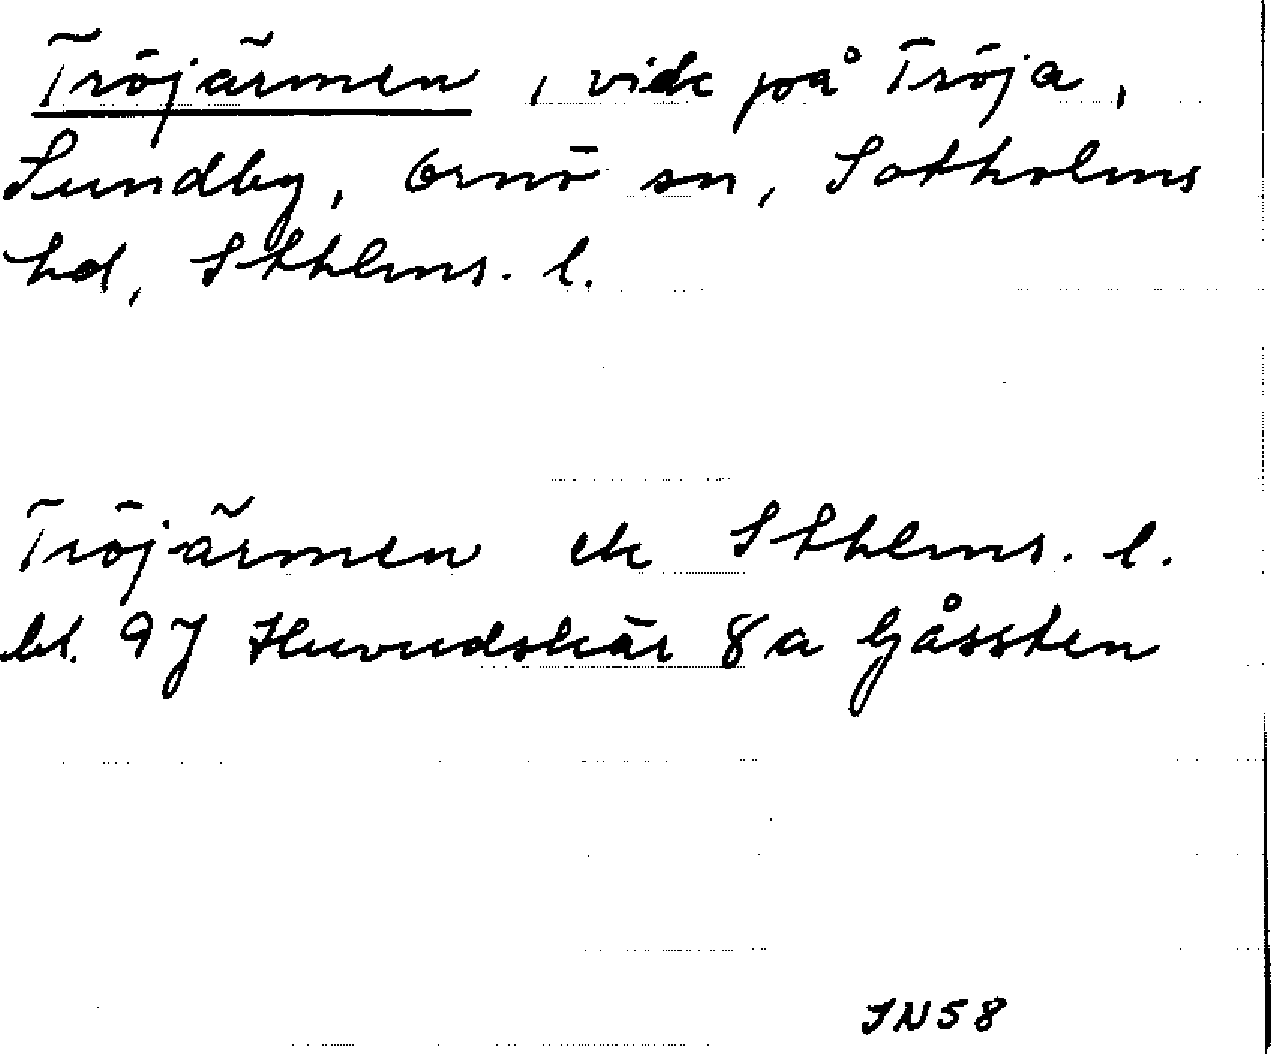 Tröjärmen, vik på Tröja,
Sundby, Ornö sn, Sotholms
hd, Sthlms. l.
Tröjärmen ek Sthlms. l.
bl. 97 Huvudskär 8a Gåssten
JN58